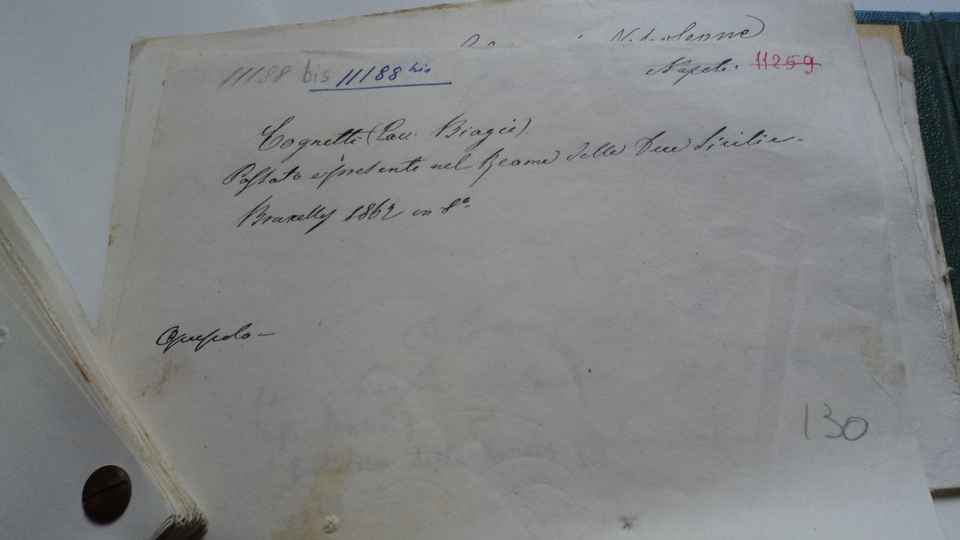 11188 bis 11188 bis
Napoli. 11259
Cognetti (Cav. Biagio)
Passato e presente nel Reame delle Due Sicilie.
Bruxelles 1862 in 8º
Opuscolo
130